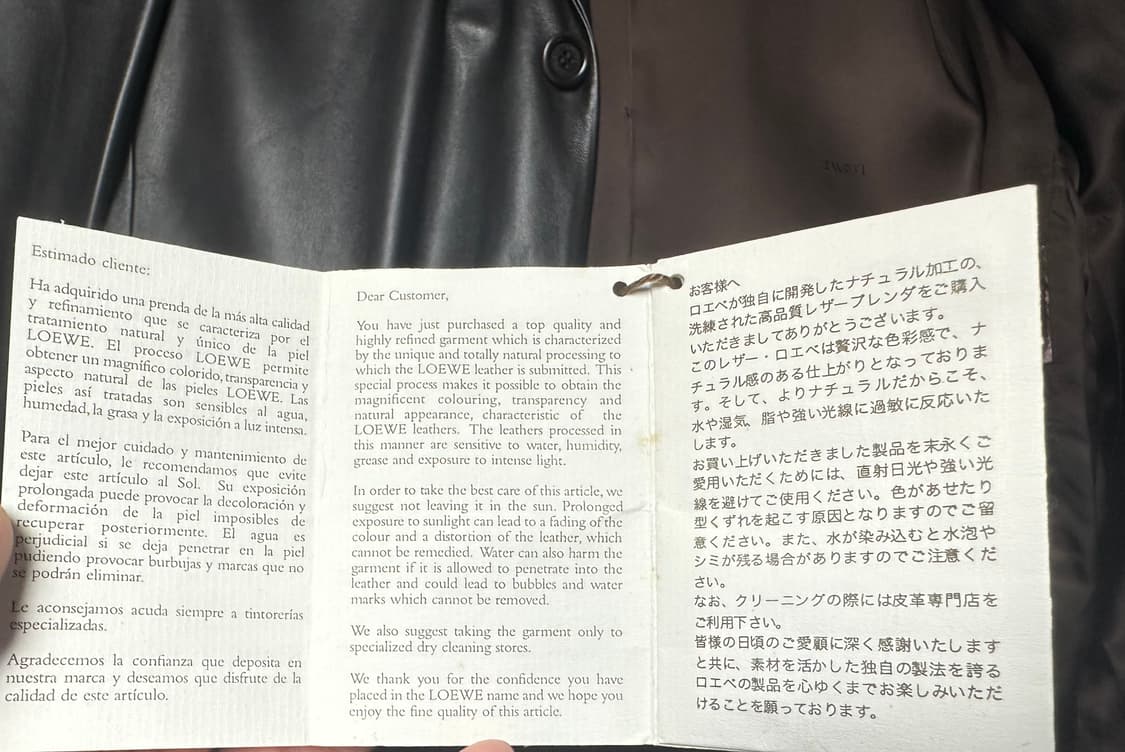 Estimado cliente:
Ha adquirido una prenda de la más alta calidad
y refinamiento que se caracteriza por el
tratamiento natural y único de la piel
LOEWE. El proceso LOEWE permite
obtener un magnífico colorido, transparencia y
aspecto natural de las pieles LOEWE. Las
pieles así tratadas son sensibles al agua,
humedad, la grasa y la exposición a luz intensa.
Para el mejor cuidado y mantenimiento de
este artículo, le recomendamos que evite
dejar este artículo al Sol. Su exposición
prolongada puede provocar la decoloración y
deformación de la piel imposibles de
recuperar posteriormente. El agua es
perjudicial si se deja penetrar en la piel
pudiendo provocar burbujas y marcas que no
se podrán eliminar.
Le aconsejamos acuda siempre a tintorerías
especializadas.
Agradecemos la confianza que deposita en
nuestra marca y deseamos que disfrute de la
calidad de este artículo.
Dear Customer,
You have just purchased a top quality and
highly refined garment which is characterized
by the unique and totally natural processing to
which the LOEWE leather is submitted. This
special process makes it possible to obtain the
magnificent colouring, transparency and
natural appearance, characteristic of the
LOEWE leathers. The leathers processed in
this manner are sensitive to water, humidity,
grease and exposure to intense light.
In order to take the best care of this article, we
suggest not leaving it in the sun. Prolonged
exposure to sunlight can lead to a fading of the
colour and a distortion of the leather, which
cannot be remedied. Water can also harm the
garment if it is allowed to penetrate into the
leather and could lead to bubbles and water
marks which cannot be removed.
We also suggest taking the garment only to
specialized dry cleaning stores.
We thank you for the confidence you have
placed in the LOEWE name and we hope you
enjoy the fine quality of this article.
お客様へ
ロエベが独自に開発したナチュラル加工の、
洗練された高品質レザーブレンダをご購入
いただきましてありがとうございます。
このレザー・ロエベは贅沢な色彩感で、ナ
チュラル感のある仕上がりとなっておりま
す。そして、よりナチュラルだからこそ、
水や湿気、脂や強い光線に過敏に反応いた
します。
お買い上げいただきました製品を末永くご
愛用いただくためには、直射日光や強い光
線を避けてご使用ください。色があせたり
型くずれを起こす原因となりますのでご留
意ください。また、水が染み込むと水泡や
シミが残る場合がありますのでご注意くだ
さい。
なお、クリーニングの際には皮革専門店を
ご利用下さい。
皆様の日頃のご愛顧に深く感謝いたします
と共に、素材を活かした独自の製法を誇る
ロエベの製品を心ゆくまでお楽しみいただ
けることを願っております。